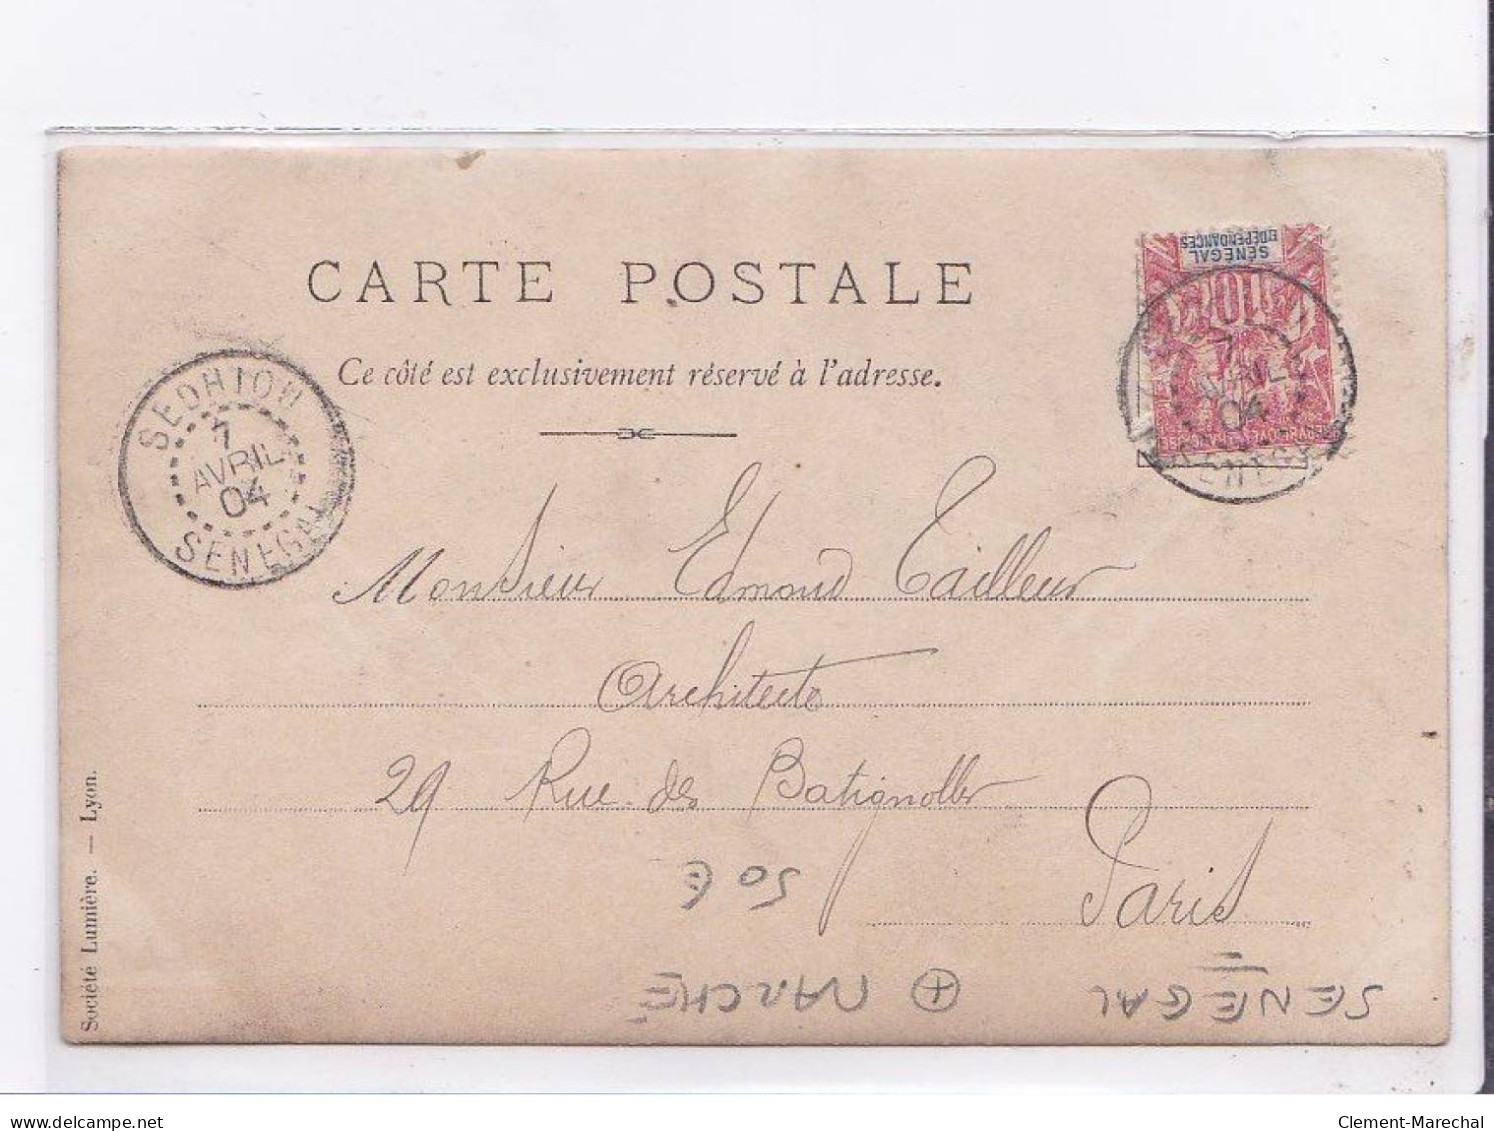 CARTE POSTALE
Ce côté est exclusivement réservé à l'adresse.
SEDHIOU
7
AVRIL
04
SENEGAL
SÉNÉGAL
ET DÉPENDANCES
10
7
AVRIL
04
SENEGAL
Monsieur Edmond Tailleur
Architecte
29 Rue des Batignolles
Paris
50 €
SENEGAL ⊕ MARCHÉ
Société Lumière. — Lyon.
delcampe.net
Clement-Marechal